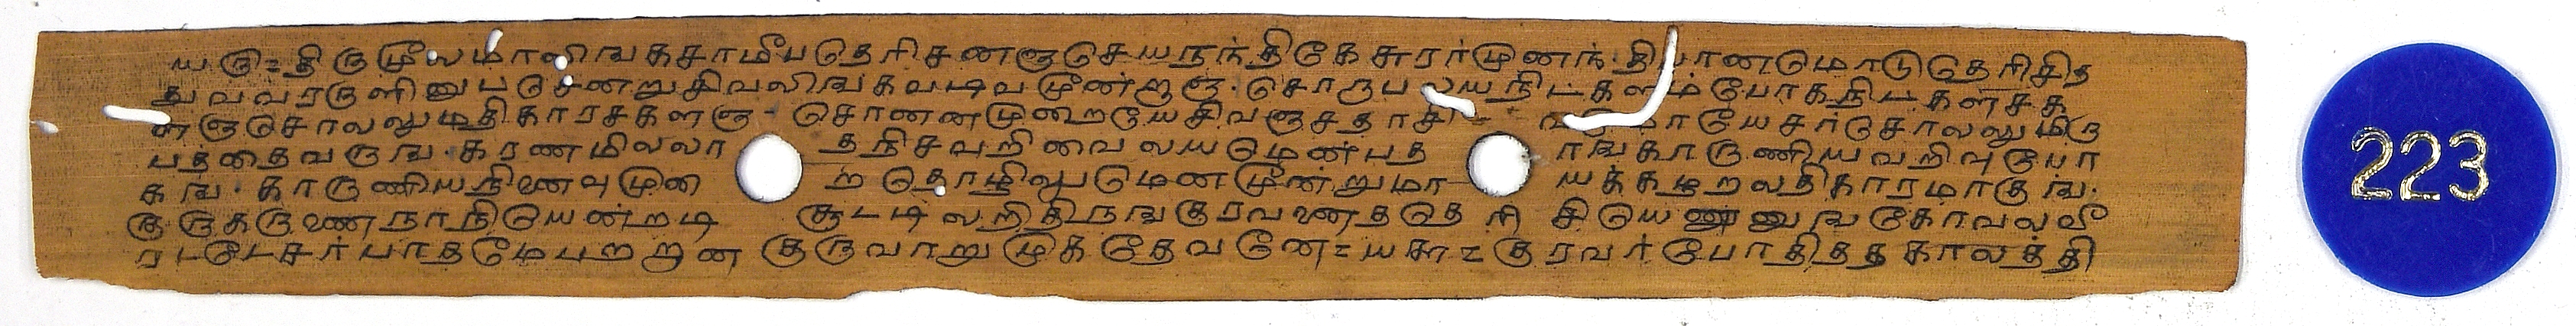 யரு=திருமூலமாலிங்கசாமீபடுதெரிசணஞசெயநந்திகேசுரர்முணந்தியானமொடுதெரிசித
துவவரருளினுபடுசனறுசிவலிஙகவடிவமூண்றாஞசொருபலயநிட்களம்போகநிடகளசக
ளஞசொலலுமதிகாரசகளஞ சொணனமுறையேசிவஞசதாசி மாயேசர்சொலலுமிரு
பத்தைவருங கரணமிலலா தநிசவறிவைலயமெண்பத ாஙகாருணியவறிவுபோ
கங காருணியநிணைவுமுன ற தொழிலுமெணமூன்றுமா யக்கமுறலதிகாரமாகுங
குருகருணைநாநியெண்றடி சூடடிலறிதிருஙகுரவணைததெரி சியெணணுஙகோவலவீ
ரடடேசர்பாதமேபறறான குருவாறுமுகதேவனே=யசு=குரவர்போதிதத்காலத்தி
223